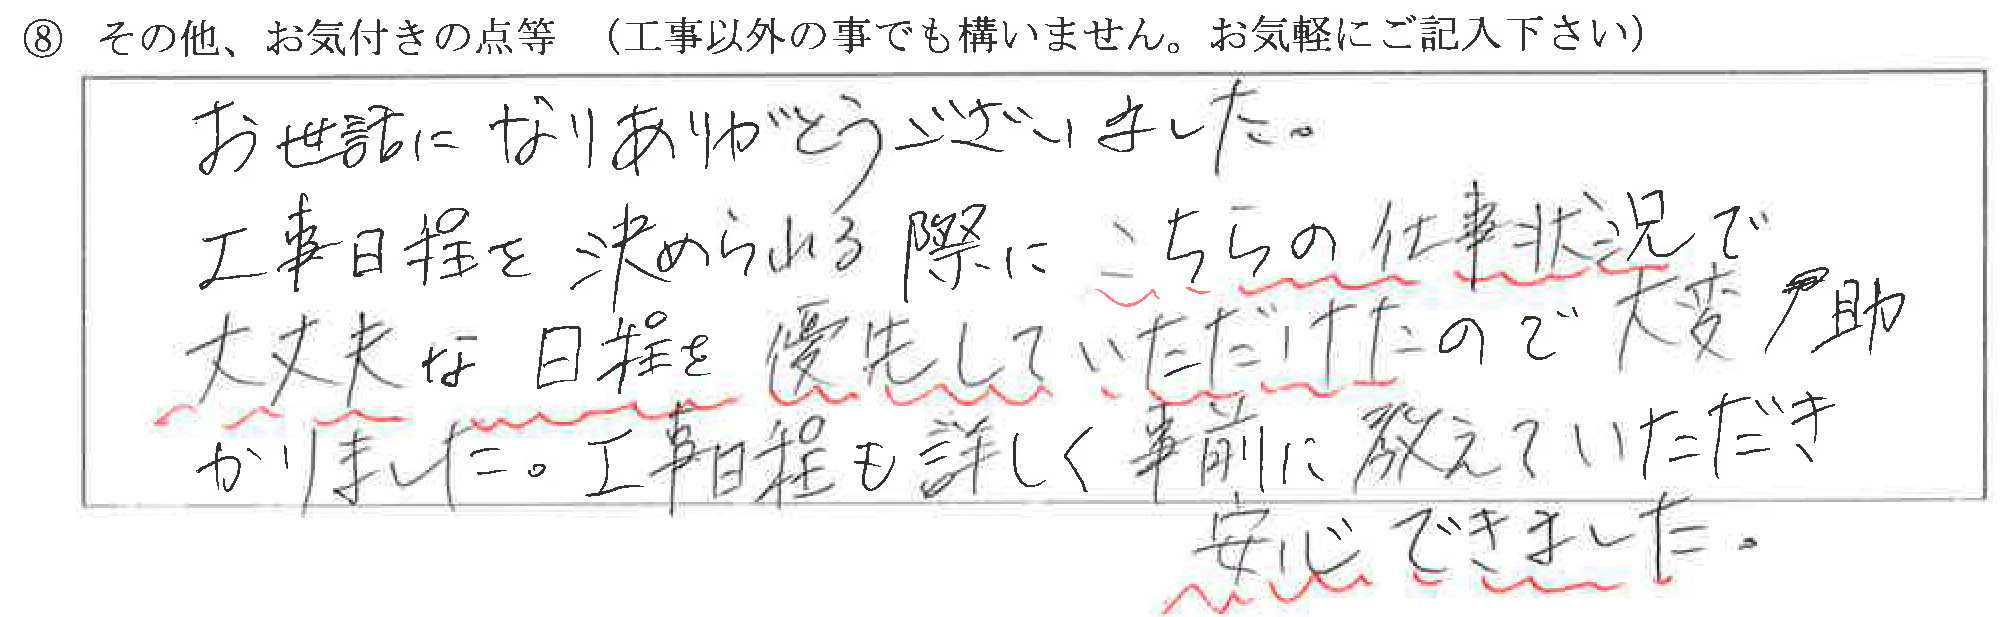 ⑧ その他、お気付きの点等 （工事以外の事でも構いません。お気軽にご記入下さい）
お世話になりありがとうございました。
工事日程を決められる際にこちらの仕事状況で
大丈夫な日程を優先していただけたので大変助
かりました。工事日程も詳しく事前に教えていただき
安心できました。